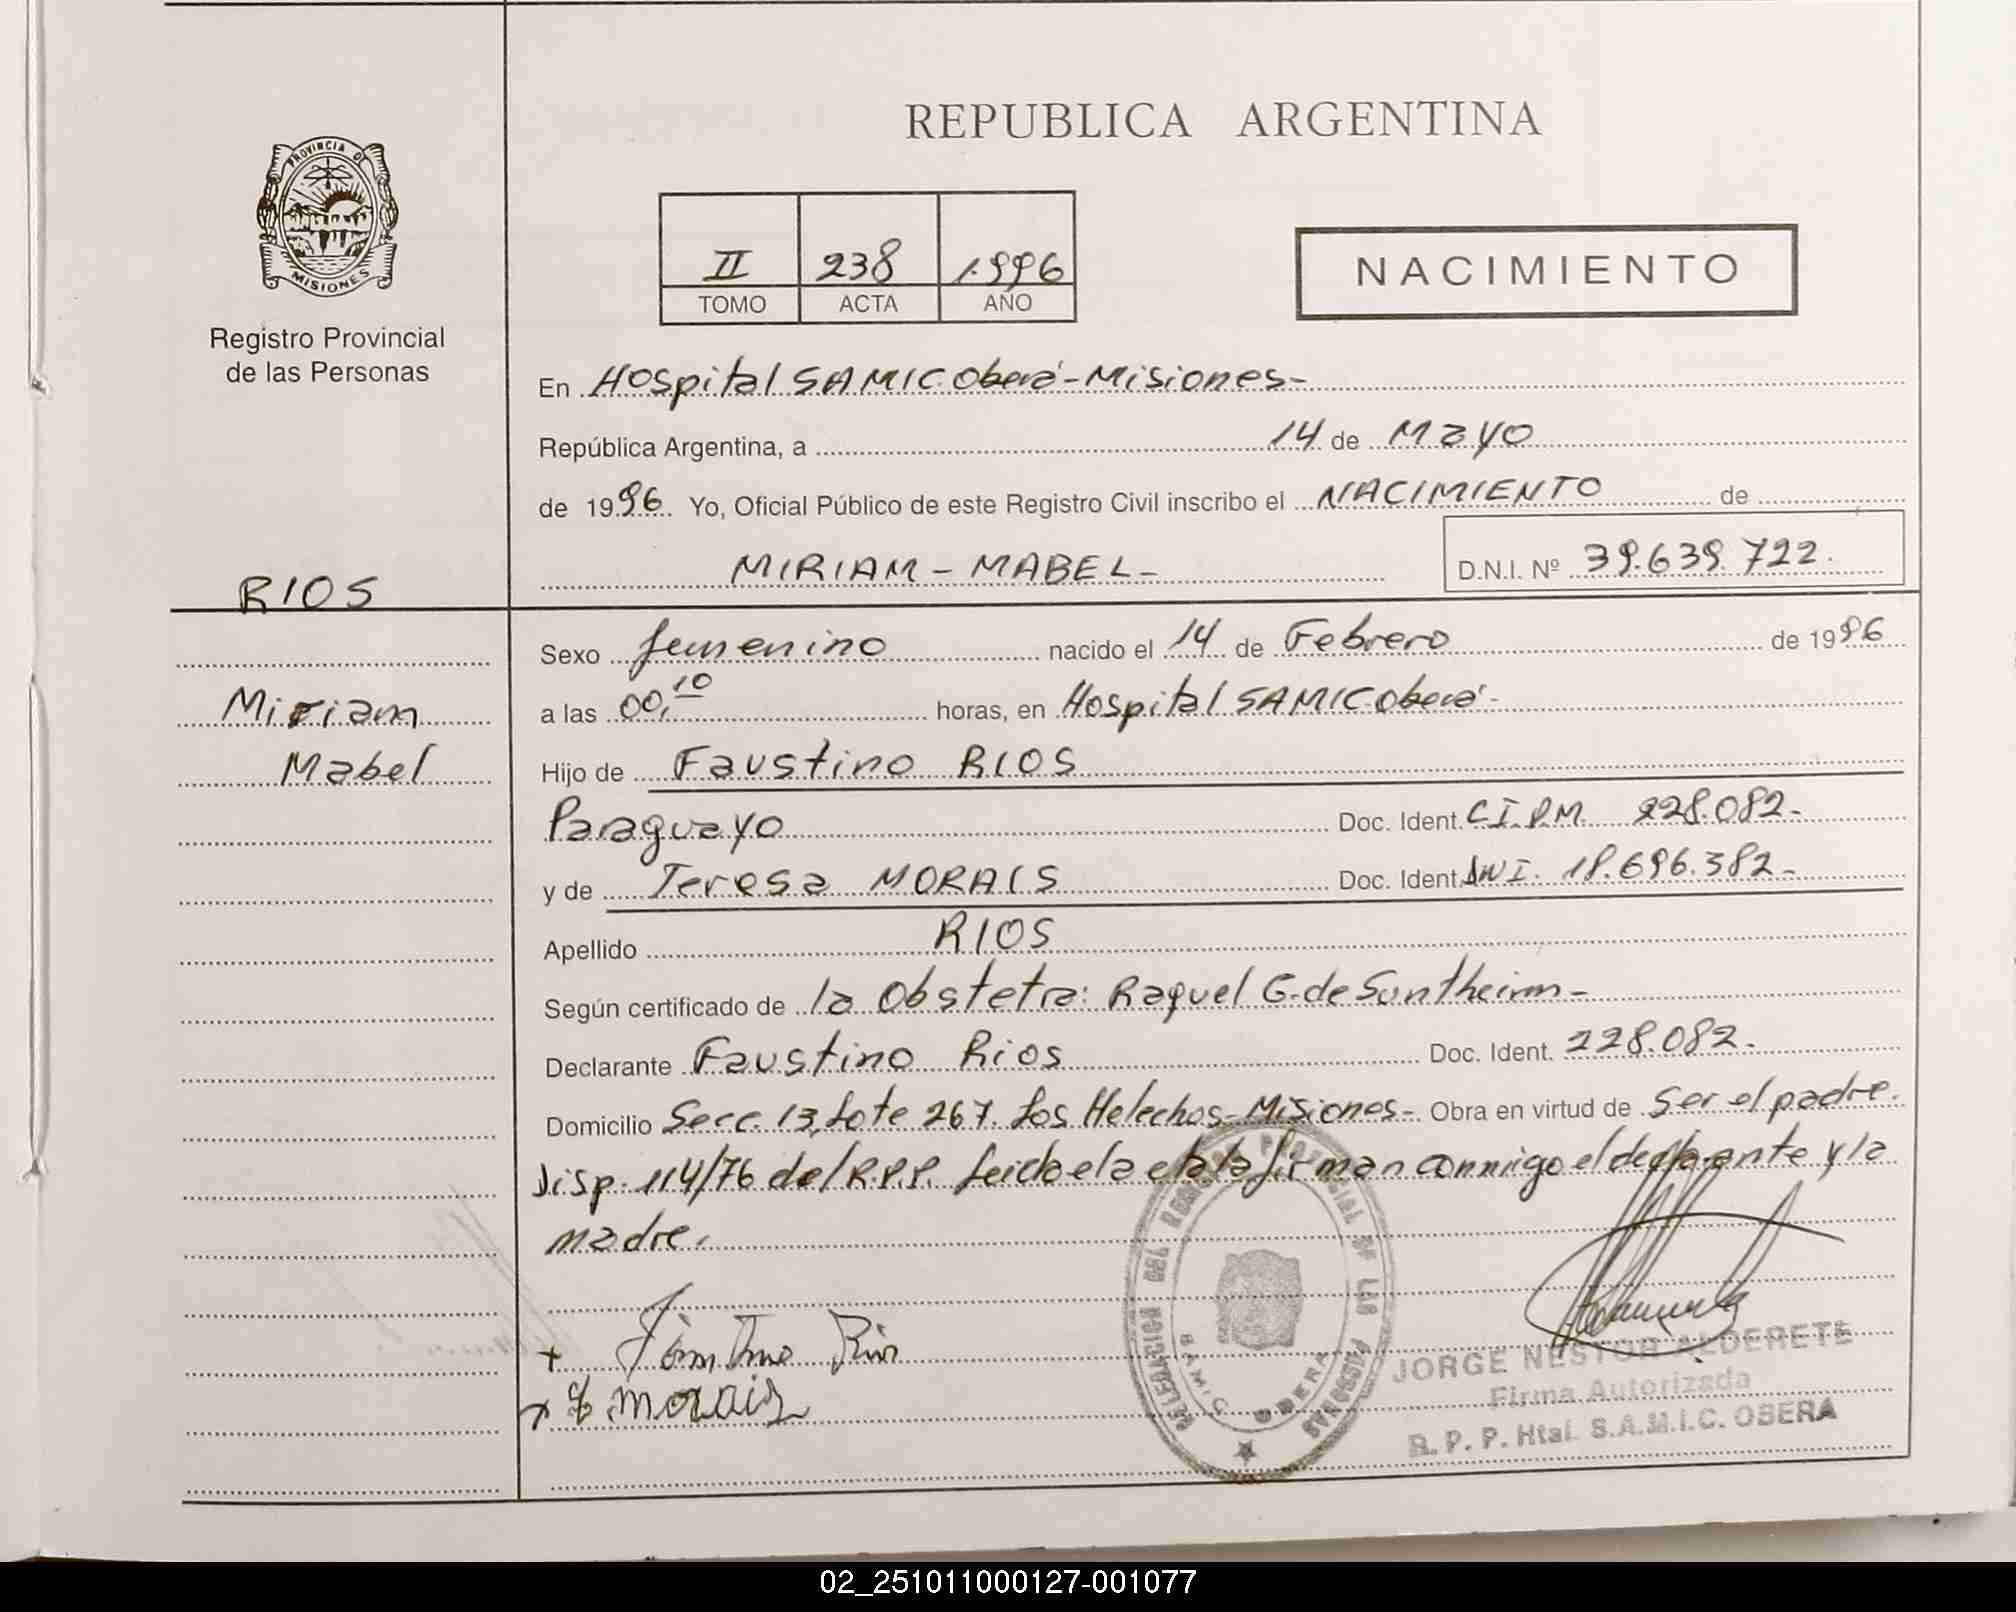 REPUBLICA ARGENTINA
PROVINCIA DE
MISIONES
Registro Provincial
de las Personas
II 238 1996
TOMO ACTA AÑO
NACIMIENTO
En Hospital SAMIC Oberá-Misiones-
República Argentina, a 14 de Mayo
de 1996 Yo, Oficial Público de este Registro Civil inscribo el NACIMIENTO de
MIRIAM - MABEL- D.N.I. Nº 39.639.722.
RIOS
Miriam
Mabel
Sexo femenino nacido el 14 de Febrero de 1996
a las 00,10 horas, en Hospital SAMIC Oberá-
Hijo de Faustino RIOS
Paraguayo Doc. Ident. C.I.P.M. 228.082-
y de Teresa MORAIS Doc. Ident. DNI. 18.696.382-
Apellido RIOS
Según certificado de la Obstetra: Raquel G. de Suntheim-
Declarante Faustino Rios Doc. Ident. 228.082.
Domicilio Secc. 13, Lote 267. Los Helechos-Misiones- Obra en virtud de Ser el padre.
Disp. 114/76 del R.P.P. Leido el acta la firman conmigo el declarante y la
madre.
+ Faustino Rios
+ T. Morais
DELEGACION DEL REGISTRO PROVINCIAL DE LAS PERSONAS
SAMIC OBERA
JORGE NESTOR ALDERETE
Firma Autorizada
R. P. P. Htal. S.A.M.I.C. OBERA
02_251011000127-001077